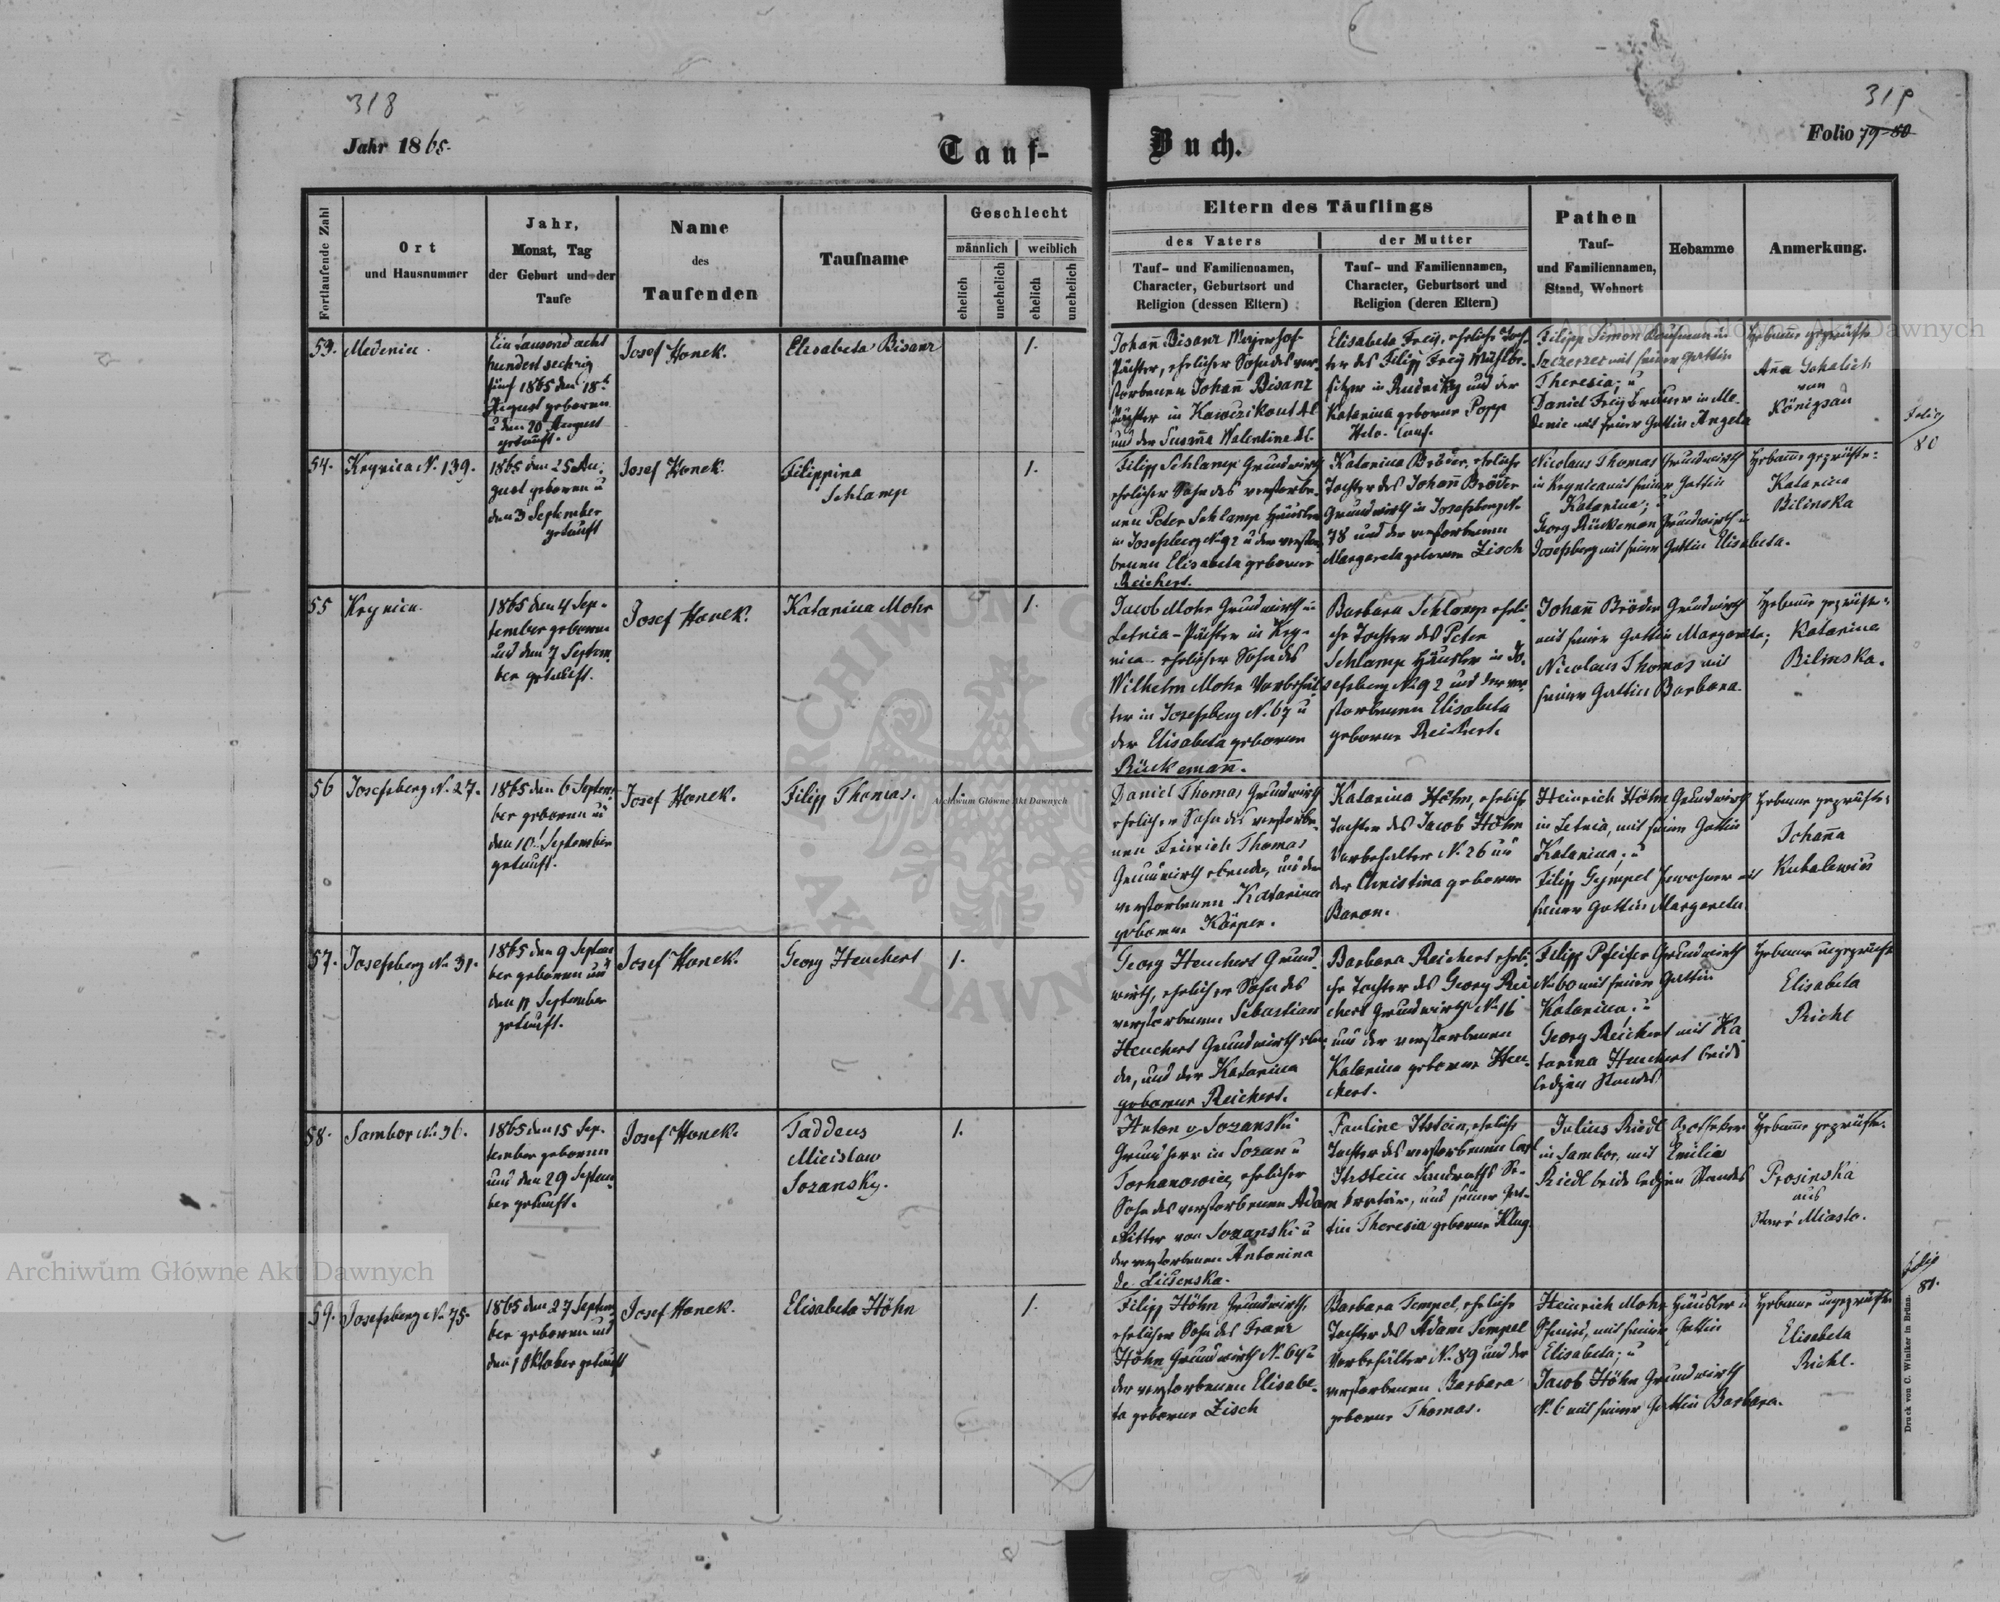 318
319
Jahr 1865.
Tauf-
Buch.
Folio 79-80
Fortlaufende Zahl
Ort
und Hausnummer
Jahr,
Monat, Tag
der Geburt und der
Taufe
Name
des
Taufenden
Taufname
Geschlecht
männlich
weiblich
ehelich
unehelich
ehelich
unehelich
Eltern des Täuflings
des Vaters
der Mutter
Tauf- und Familiennamen,
Character, Geburtsort und
Religion (dessen Eltern)
Tauf- und Familiennamen,
Character, Geburtsort und
Religion (deren Eltern)
Pathen
Tauf-
und Familiennamen,
Stand, Wohnort
Hebamme
Anmerkung.
53. Medenice
Ein tausend acht
hundert sechzig
fünf 1865 den 18t
August geboren
u den 20 August
getauft.
Josef Hanek.
Elisabeta Bisanz
1.
Johann Bisanz Mayerhof-
Pächter, ehelicher Sohn des ver-
storbenen Johann Bisanz
Pächter in
und der Susanna Walentine
Elisabeta Frey, eheliche Toch-
ter des Filipp Frey Mühlbe-
sitzer in Rudniky und der
Katarina geborne Popp
Filipp Simon Kaufman in
Szczerzec mit seiner Gattin
Theresia; u
Daniel Frey Bräuer in Me-
denic mit seiner Gattin Angela
Hebamme geprüfte
Anna
von
Königsau
Folio
80
54. Krynica N. 139.
1865 den 25 Au-
gust geboren u
den 3 September
getauft
Josef Hanek.
Filippina
Schlamp
1.
Filipp Schlamp Grundwirth
ehelicher Sohn des verstorbe-
nen Peter Schlamp Häusler
in Josefsberg N. 92 u der verstor-
benen Elisabeta geborne
Reichert.
Katarina Bröder, eheliche
Tochter des Johann Bröder
Grundwirth in Josefsberg N.
78 und der verstorbenen
Margareta geborne Zisch
Nicolaus Thomas Grundwirth
in Krynica mit seiner Gattin
Katarina;
Georg Rückeman Grundwirth in
Josefsberg mit seiner Gattin Elisabeta.
Hebamme geprüfte:
Katarina
Bilinska
55 Krynica
1865 den 4 Sep-
tember geboren
und den 7 Septem-
ber getauft.
Josef Hanek.
Katarina Mohr
1.
Jacob Mohr Grundwirth in
Letnia-Pächter in Kry-
nica ehelicher Sohn des
Wilhelm Mohr Vorbehal-
ter in Josefsberg N. 67 u
der Elisabeta geborne
Rückemann.
Barbara Schlamp eheli-
che Tochter des Peter
Schlamp Häusler in Jo-
sefsberg N. 92 und der ver-
storbenen Elisabeta
geborne Reichert.
Johann Bröder Grundwirth
mit seiner Gattin Margareta;
Nicolaus Thomas mit
seiner Gattin Barbara.
Hebamme geprüfte:
Katarina
Bilinska.
56 Josefsberg N. 27.
1865 den 6 Septem-
ber geboren u
den 10 September
getauft.
Josef Hanek.
Filipp Thomas.
1.
Daniel Thomas Grundwirth
ehelicher Sohn des verstorbe-
nen Heinrich Thomas
Grundwirth ebenda, und der
verstorbenen Katarina
geborne Körper.
Katarina Höhn, eheliche
Tochter des Jacob Höhn
Vorbehalter N. 26 und
der Christina geborne
Baron.
Heinrich Höhn Grundwirth
in Letnia, mit seiner Gattin
Katarina; u
Filipp Gympel Inwohner mit
seiner Gattin Margareta.
Hebamme geprüfte:
Johanna
Kubalewicz
57. Josefsberg N. 31.
1865 den 9 Septem-
ber geboren und
den 17 September
getauft.
Josef Hanek.
Georg Heuchert
1.
Georg Heuchert Grund-
wirth, ehelicher Sohn des
verstorbenen Sebastian
Heuchert Grundwirth eben-
da, und der Katarina
geborne Reichert.
Barbara Reichert eheli-
che Tochter des Georg Rei-
chert Grundwirth N. 16
und der verstorbenen
Katarina geborne Heu-
chert.
Filipp Pfeifer Grundwirth
N. 60 mit seiner Gattin
Katarina; u
Georg Reichert mit Ka-
tarina Heuchert beide
ledigen Standes
Hebamme ungeprüfte
Elisabeta
Richl
58. Sambor N. 36.
1865 den 15 Sep-
tember geboren
und den 29 Septem-
ber getauft.
Josef Hanek.
Taddeus
Mieislaw
Sozansky.
1.
Anton v. Sozanski
Grundherr in Sozan u
Torhanowice, ehelicher
Sohn des verstorbenen Adam
Ritter von Sozanski u
der verstorbenen Antonina
de
Pauline Itstein, eheliche
Tochter des verstorbenen Carl
Itstein Landraths Se-
kretär, und seiner Gat-
tin Theresia geborne Klug.
Julius Riedl Apotheker
in Sambor, mit Emilia
Riedl beide ledigen Standes
Hebamme geprüfte.
Prosinska
aus
Stare Miasto.
59. Josefsberg N. 75.
1865 den 27 Septem-
ber geboren und
den 1 Oktober getauft
Josef Hanek.
Elisabeta Höhn
1.
Filipp Höhn Grundwirth,
ehelicher Sohn des Franz
Höhn Grundwirth N. 64 u
der verstorbenen Elisabe-
ta geborne Zisch
Barbara Tempel, eheliche
Tochter des Adam Tempel
Vorbehälter N. 89 und der
verstorbenen Barbara
geborne Thomas.
Heinrich Mohr Häusler u
Schmied, mit seiner Gattin
Elisabeta; u
Jacob Höhn Grundwirth
N. 6 mit seiner Gattin Barbara.
Hebamme ungeprüfte
Elisabeta
Richl.
Folio
81.
Druck von C. Winiker in Brünn.
Archiwum Główne Akt Dawnych
Archiwum Główne Akt Dawnych
Archiwum Główne Akt Dawnych